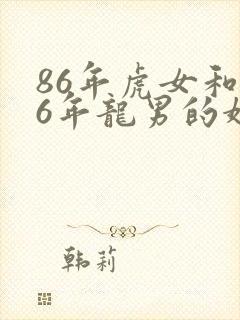 86年虎女和
6年龍男的
韩莉